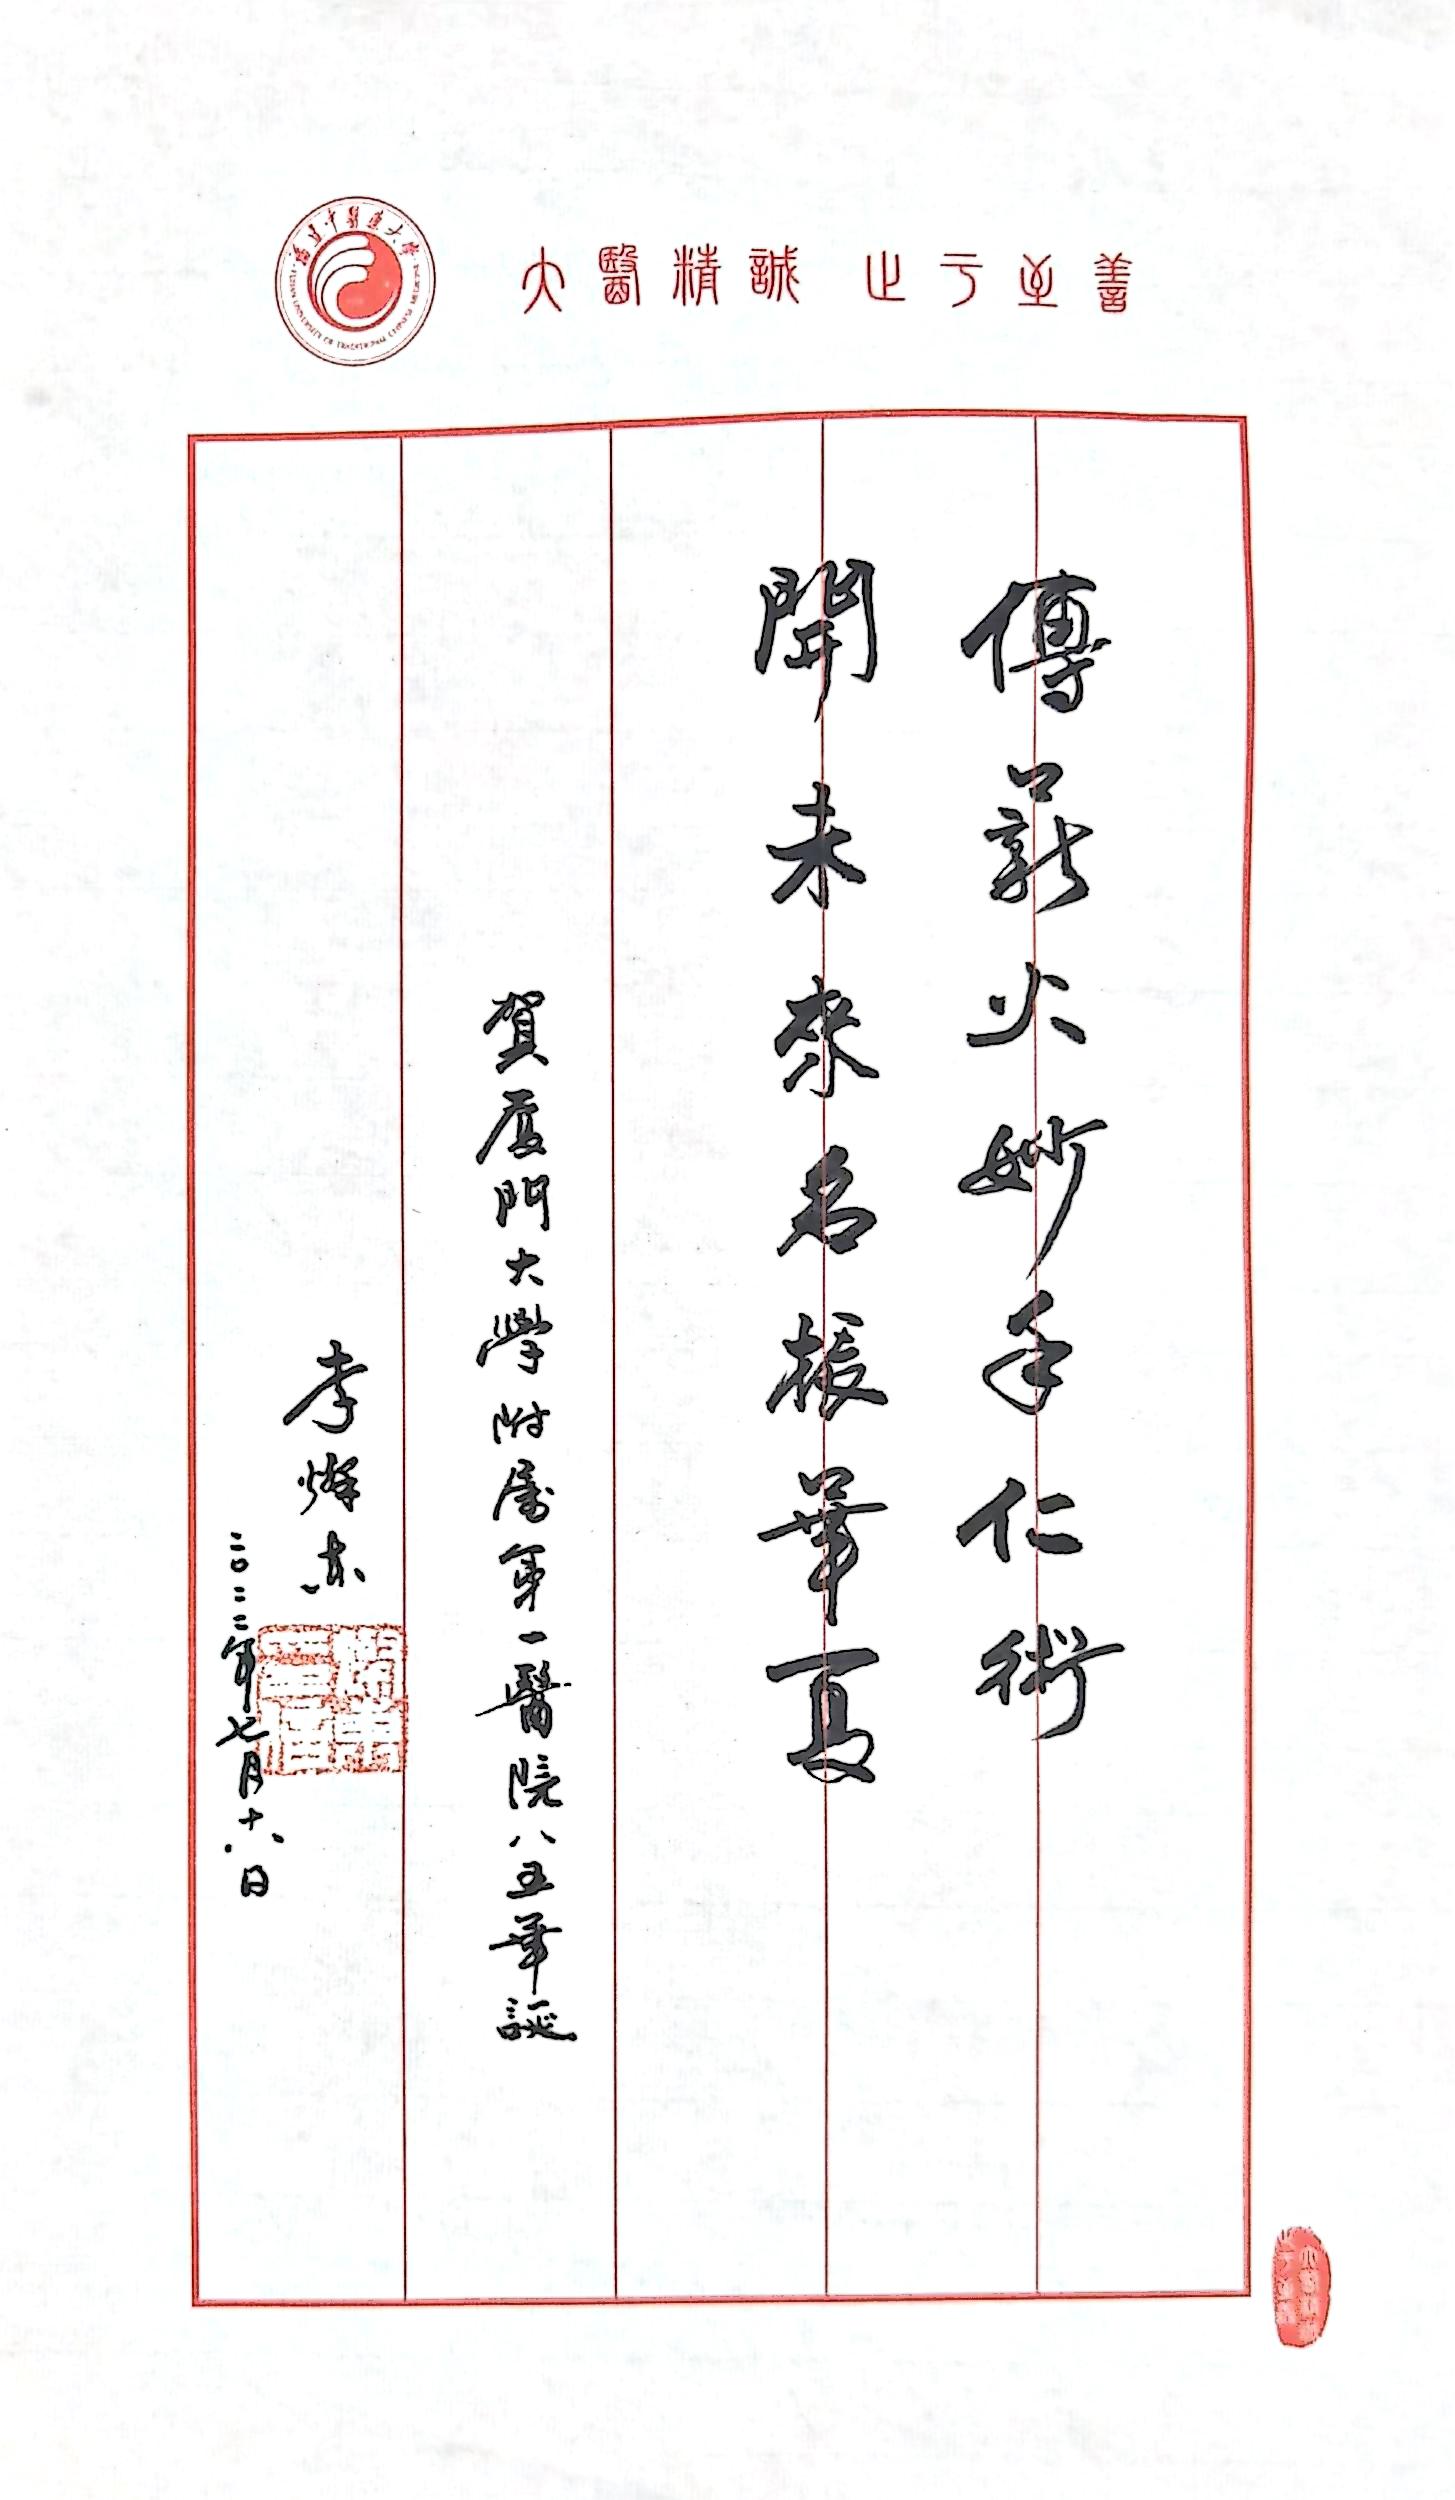 福建中醫藥大學
FUJIAN UNIVERSITY OF TRADITIONAL CHINESE MEDICINE
大醫精誠 止于至善
傳薪火妙手仁術
開未來名振華夏
賀厦門大學附屬第一醫院八五華誕
李燦东
二〇二二年七月十八日